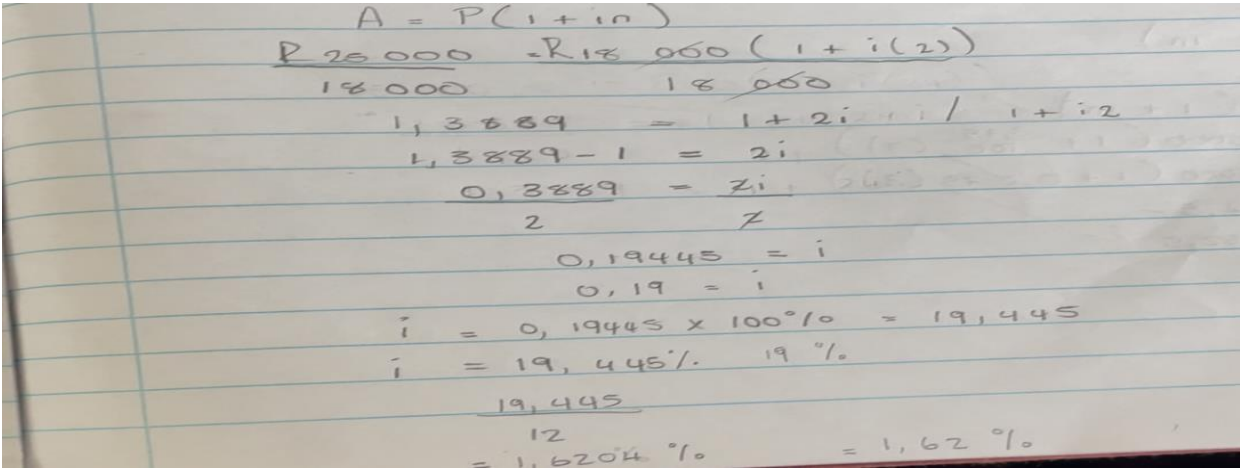 A = P(1 + in)
R 25 000 = R18 000 (1 + i(2))
18 000 18 000
1,3889 = 1 + 2i / 1 + i2
1,3889 - 1 = 2i
0,3889 = 2i
2 2
0,19445 = i
0,19 = i
i = 0,19445 x 100% = 19,445
i = 19,445% 19 %
19,445
12
= 1,6204 % = 1,62 %